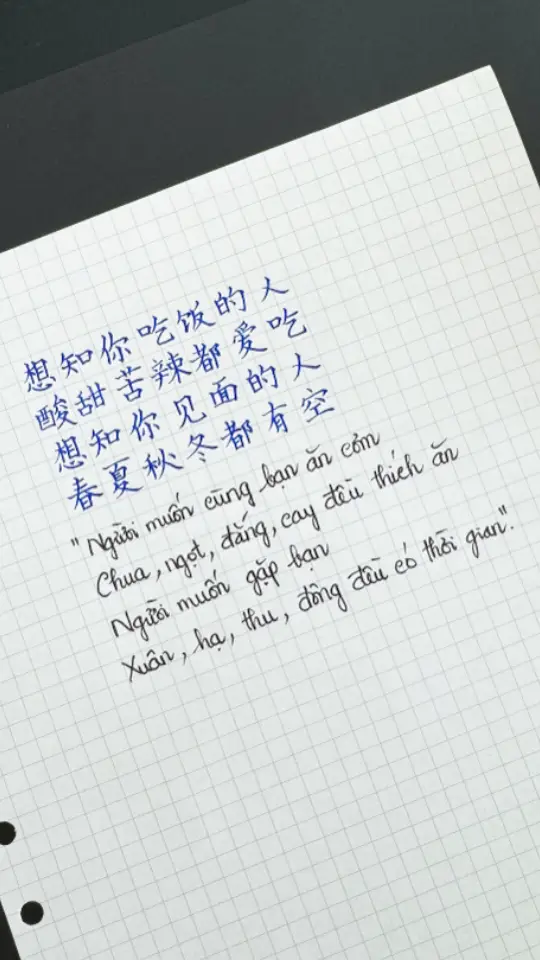 想知你吃饭的人
酸甜苦辣都爱吃
想知你见面的人
春夏秋冬都有空
"Người muốn cùng bạn ăn cơm
Chua, ngọt, đắng, cay đều thích ăn
Người muốn gặp bạn
Xuân, hạ, thu, đông đều có thời gian".